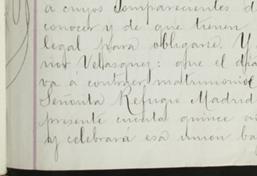 á cuyos comparecientes d
conocer y de que tienen
legal para obligarse. Y
nor Velasquez: que el dia
va á contraer matrimonio
Señorita Refugio Madrid
presente cuenta quince a
y celebrará esa union ba